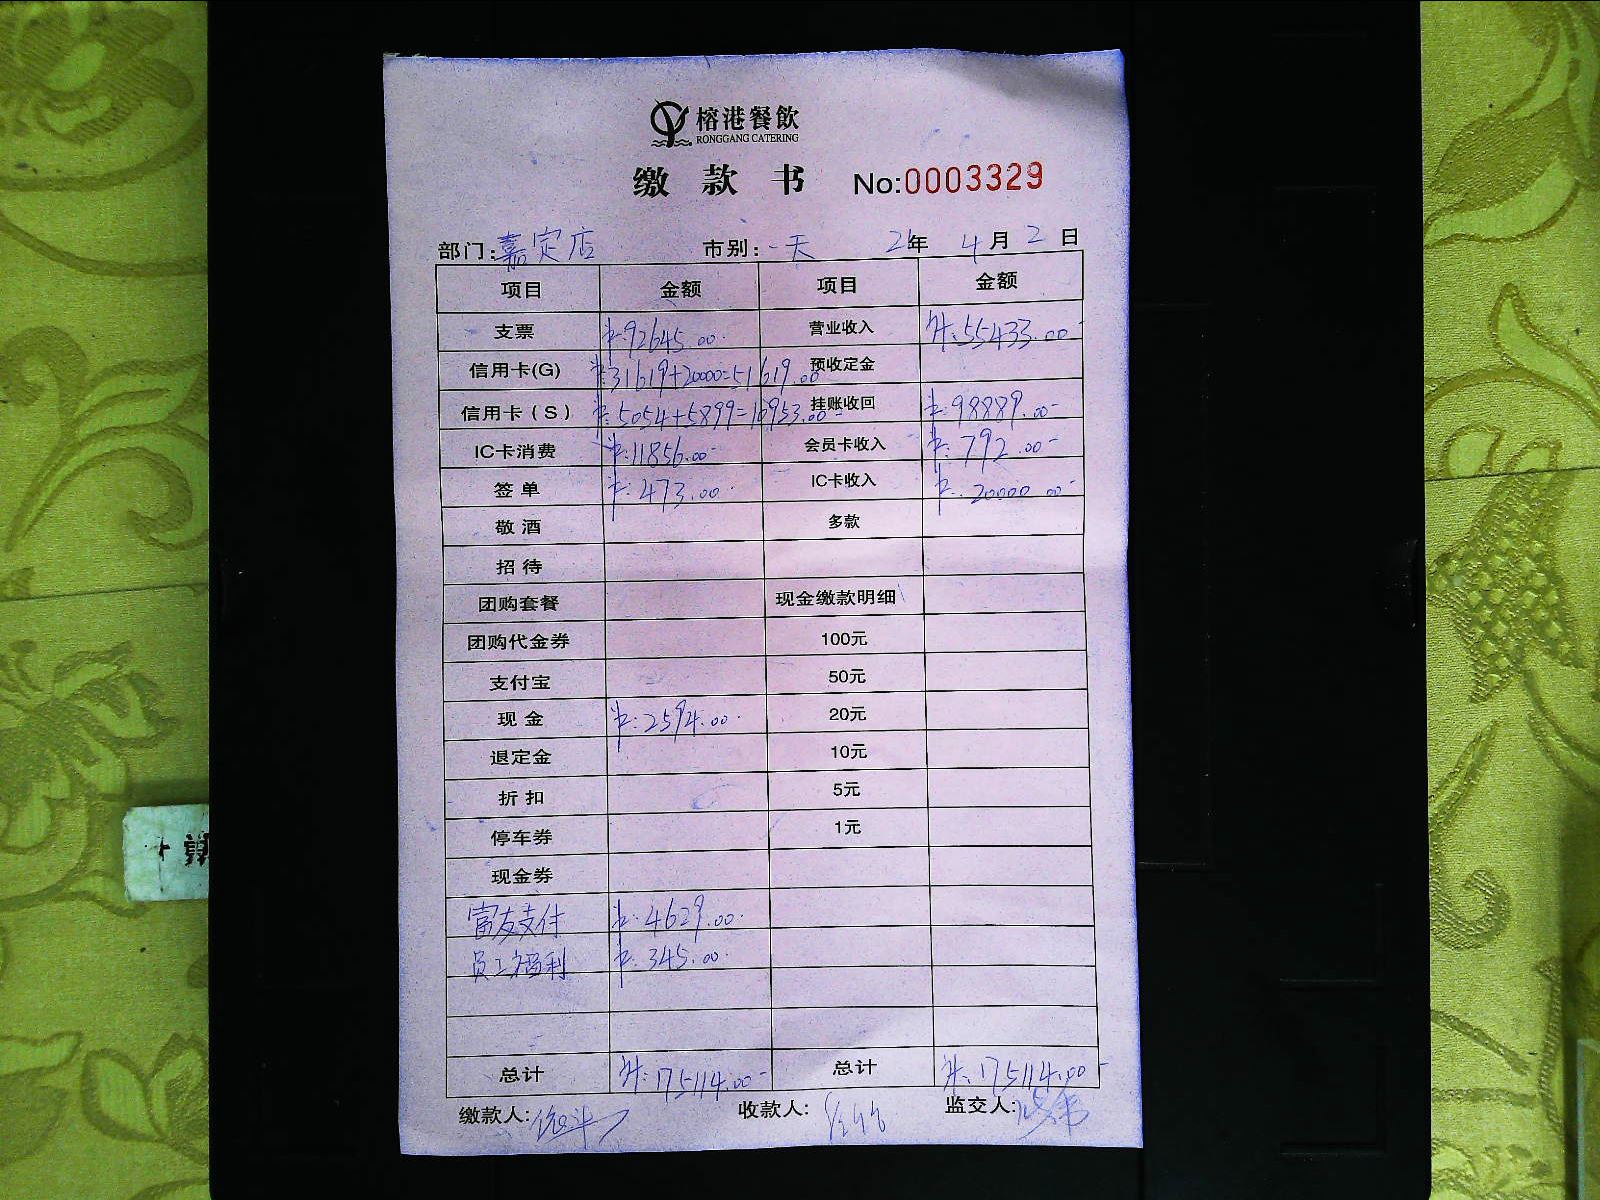 榕港餐飲
RONGGANG CATERING
缴款书 No:0003329
部门:嘉定店 市别:一天 21年4月2日
项目 金额 项目 金额
支票 ¥:92645.00 营业收入 ¥:55433.00
信用卡(G) ¥:31619+20000=51619.00 预收定金
信用卡(S) ¥:5054+5899=10953.00 挂账收回 ¥:98889.00
IC卡消费 ¥:11856.00 会员卡收入 ¥:792.00
签单 ¥:473.00 IC卡收入 ¥:20000.00
敬酒 多款
招待
团购套餐 现金缴款明细
团购代金券 100元
支付宝 50元
现金 ¥:2594.00 20元
退定金 10元
折扣 5元
停车券 1元
现金券
富友支付 ¥:4629.00
员工福利 ¥:345.00
总计 ¥:175114.00 总计 ¥:175114.00
缴款人: 收款人: 监交人: